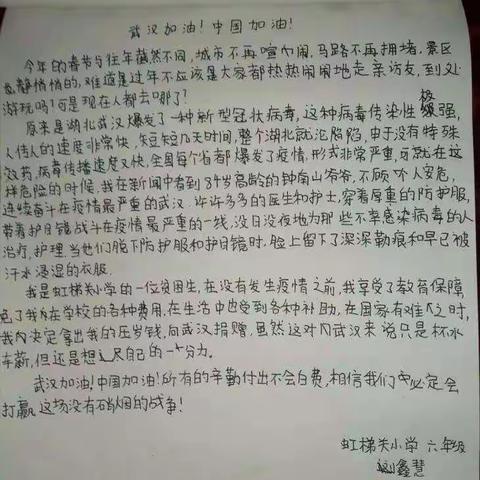 武汉加油！中国加油！
今年的春节与往年截然不同，城市不再喧闹，马路不再拥堵，景区
也静悄悄的，难道是过年不应该是大家都热热闹闹地走亲访友，到处
游玩吗？可是现在人都去哪了？
原来是湖北武汉爆发了一种新型冠状病毒，这种病毒传染性极强，
人传人的速度非常快，短短几天时间，整个湖北就沦陷陷，由于没有特殊
效药，病毒传播速度又快，全国每个省都爆发了疫情，形式非常严重，就在这
样危险的时候，我在新闻中看到84岁高龄的钟南山爷爷，不顾个人安危，
连续奋斗在疫情最严重的武汉，许许多多的医生和护士，穿着厚重的防护服，
带着护目镜战斗在疫情最严重的一线，没日没夜地为那些不幸感染病毒的人
治疗，护理，当他们脱下防护服和护目镜时，脸上留下了深深勒痕和早已被
汗水浸湿的衣服
我是虹梯关小学的一位贫困生，在没有发生疫情之前，我享受了教育保障，
免了我在学校的各种费用，在生活中也受到各种补助，在国家有难之时，
我决定拿出我的压岁钱，向武汉捐赠，虽然这对武汉来说只是杯水
车薪，但还是想尽自己的一份力。
武汉加油！中国加油！所有的辛勤付出不会白费，相信我们必定会
打赢这场没有硝烟的战争！
虹梯关小学 六年级
刘鑫慧